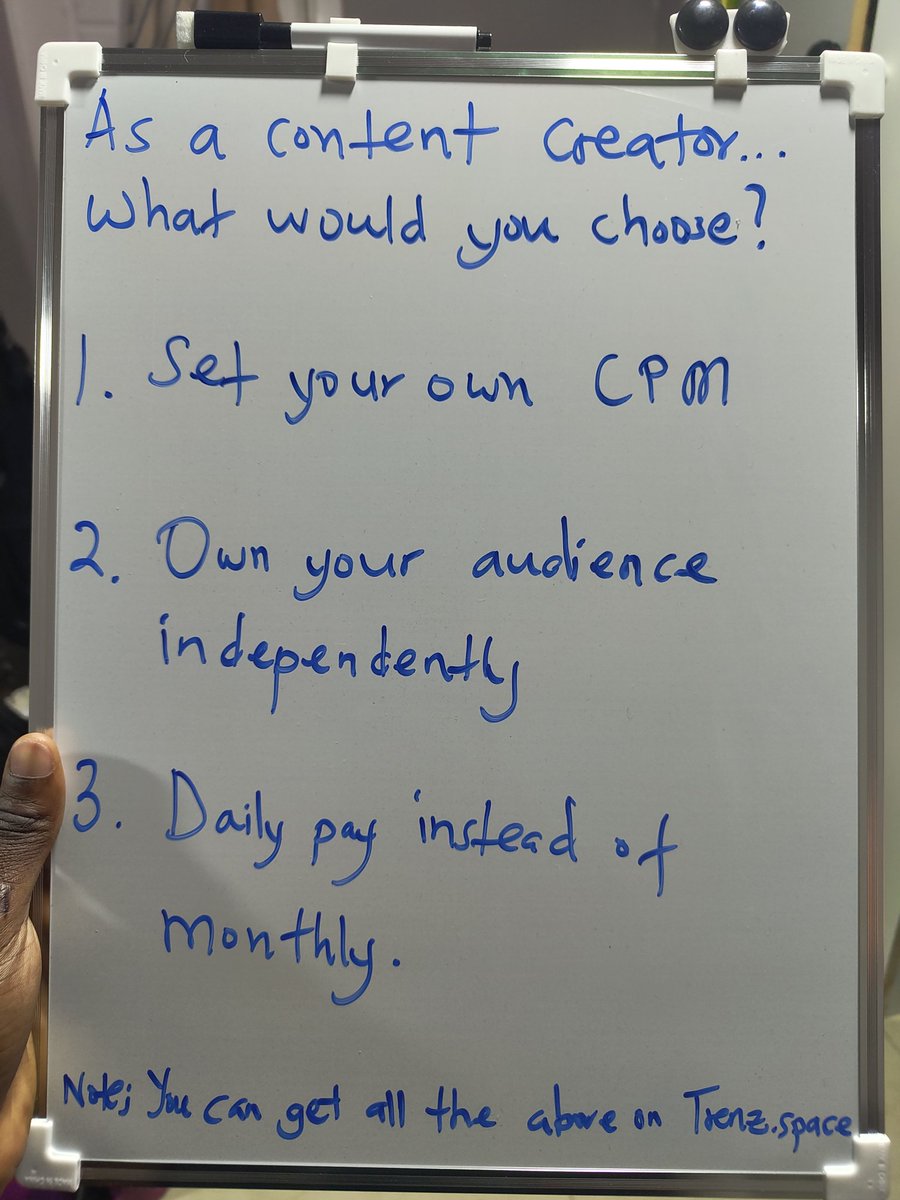 As a content Creator...
What would you choose?
1. Set your own CPM
2. Own your audience
independently
3. Daily pay instead of
monthly.
Note; You can get all the above on Trenz.space